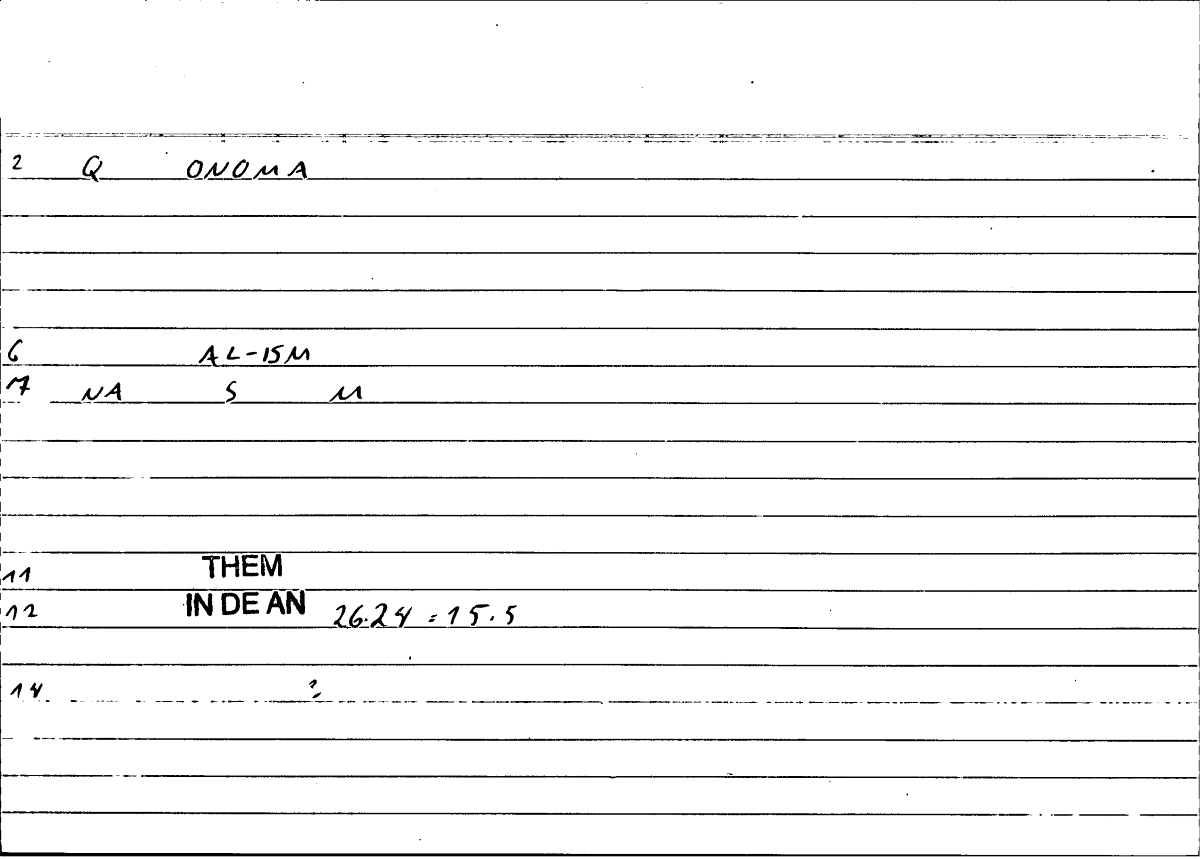 2 Q ONOMA
6 AL-ISM
7 NA S M
11 THEM
12 IN DE AN 26.24 = 15.5
14 ?